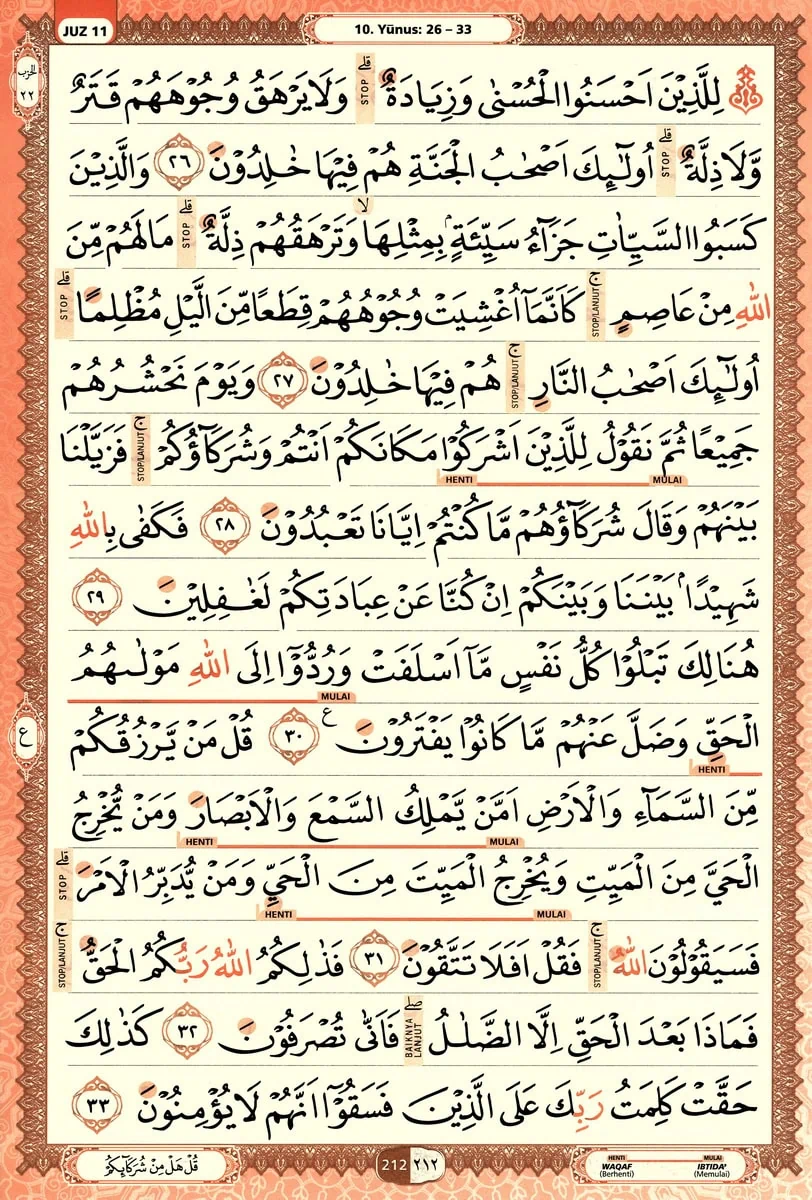 JUZ 11
10. Yūnus: 26 – 33
الحزب
٢٢
لِلَّذِيْنَ اَحْسَنُوا الْحُسْنٰى وَزِيَادَةٌ ۗ STOP وَلَا يَرْهَقُ وُجُوْهَهُمْ قَتَرٌ
وَّلَا ذِلَّةٌ ۗ STOP اُولٰۤىِٕكَ اَصْحٰبُ الْجَنَّةِ هُمْ فِيْهَا خٰلِدُوْنَ ٢٦ وَالَّذِيْنَ
كَسَبُوا السَّيِّاٰتِ جَزَاۤءُ سَيِّئَةٍ ۢبِمِثْلِهَاۙ وَتَرْهَقُهُمْ ذِلَّةٌ ۗ STOP مَا لَهُمْ مِّنَ
اللّٰهِ مِنْ عَاصِمٍ ۚ STOP/LANJUT كَاَنَّمَآ اُغْشِيَتْ وُجُوْهُهُمْ قِطَعًا مِّنَ الَّيْلِ مُظْلِمًا ۗ STOP
اُولٰۤىِٕكَ اَصْحٰبُ النَّارِ ۚ STOP/LANJUT هُمْ فِيْهَا خٰلِدُوْنَ ٢٧ وَيَوْمَ نَحْشُرُهُمْ
جَمِيْعًا ثُمَّ نَقُوْلُ لِلَّذِيْنَ اَشْرَكُوْا مَكَانَكُمْ اَنْتُمْ وَشُرَكَاۤؤُكُمْ ۚ STOP/LANJUT فَزَيَّلْنَا
MULAI HENTI
بَيْنَهُمْ وَقَالَ شُرَكَاۤؤُهُمْ مَّا كُنْتُمْ اِيَّانَا تَعْبُدُوْنَ ٢٨ فَكَفٰى بِاللّٰهِ
شَهِيْدًا ۢ بَيْنَنَا وَبَيْنَكُمْ اِنْ كُنَّا عَنْ عِبَادَتِكُمْ لَغٰفِلِيْنَ ٢٩
هُنَالِكَ تَبْلُوْا كُلُّ نَفْسٍ مَّآ اَسْلَفَتْ وَرُدُّوْٓا اِلَى اللّٰهِ مَوْلٰىهُمُ
MULAI
الْحَقِّ وَضَلَّ عَنْهُمْ مَّا كَانُوْا يَفْتَرُوْنَ ࣖ ٣٠ قُلْ مَنْ يَّرْزُقُكُمْ
ع
HENTI
مِّنَ السَّمَاۤءِ وَالْاَرْضِ اَمَّنْ يَّمْلِكُ السَّمْعَ وَالْاَبْصَارَ وَمَنْ يُّخْرِجُ
MULAI HENTI
الْحَيَّ مِنَ الْمَيِّتِ وَيُخْرِجُ الْمَيِّتَ مِنَ الْحَيِّ وَمَنْ يُّدَبِّرُ الْاَمْرَ ۗ STOP
MULAI HENTI
فَسَيَقُوْلُوْنَ اللّٰهُ ۚ STOP/LANJUT فَقُلْ اَفَلَا تَتَّقُوْنَ ٣١ فَذٰلِكُمُ اللّٰهُ رَبُّكُمُ الْحَقُّ ۚ STOP/LANJUT
فَمَاذَا بَعْدَ الْحَقِّ اِلَّا الضَّلٰلُ ۖ BAIKNYA LANJUT فَاَنّٰى تُصْرَفُوْنَ ٣٢ كَذٰلِكَ
حَقَّتْ كَلِمَتُ رَبِّكَ عَلَى الَّذِيْنَ فَسَقُوْٓا اَنَّهُمْ لَا يُؤْمِنُوْنَ ٣٣
قُلْ هَلْ مِنْ شُرَكَاۤىِٕكُمْ
212 ٢١٢
HENTI MULAI
WAQAF IBTIDA'
(Berhenti) (Memulai)